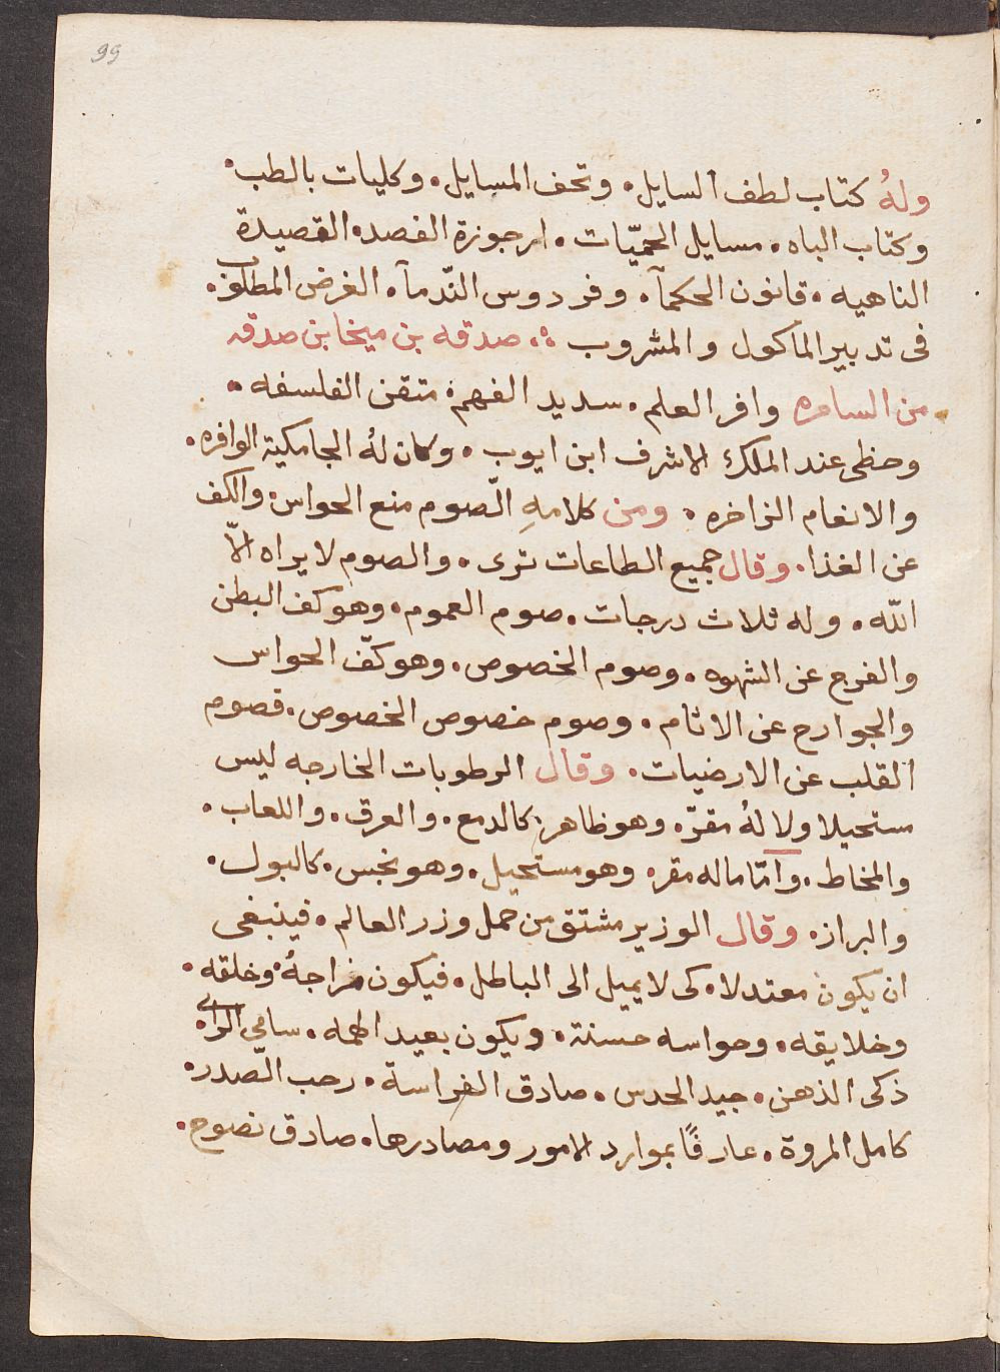 99
ولهُ كتاب لطف السايل. وتحف المسايل. وكليات بالطب.
وكتاب الباه. مسايل الحميّات. ارجوزة الفصد. القصيدة
الناهيه. قانون الحكمآ. وفردوس النّدمآ. الغرض المطلوب.
فى تدبير الماكول والمشروب ؞ صدقه بن ميخا بن صدقه
من السامره وافر العلم. سديد الفهم. متقن الفلسفه.
وحظى عند الملك الاشرف ابن ايوب. وكان لهُ الجامكية الوافره.
والانعام الزاخره. ومن كلامهِ الصّوم منع الحواس. والكف
عن الغذا. وقال جميع الطاعات ترى. والصوم لا يراه الاّ
الله. وله ثلاث درجات. صوم العموم. وهو كف البطن
والفرج عن الشهوه. وصوم الخصوص. وهو كفّ الحواس
والجوارح عن الاثام. وصوم خصوص الخصوص. فصوم
القلب عن الارضيات. وقال الرطوبات الخارجه ليس
ستحيلا ولا لهُ مقرّ. وهو ظاهر. كالدمع. والعرق. واللعاب.
والمخاط. وامّا ماله مقر. وهو مستحيل. وهو نجس. كالبول.
والبراز. وقال الوزير مشتق من حمل وزر العالم. فينبغى
ان يكون معتدلا. كى لا يميل الى الباطل. فيكون مزاجهُ. وخلقه.
وخلايقه. وحواسه حسنة. ويكون بعيد الهمه. سامى الراى.
ذكى الذهن. جيد الحدس. صادق الفراسة. رحب الصّدر.
كامل المروة. عارفًا بموارد الامور ومصادرها. صادق نصوح.